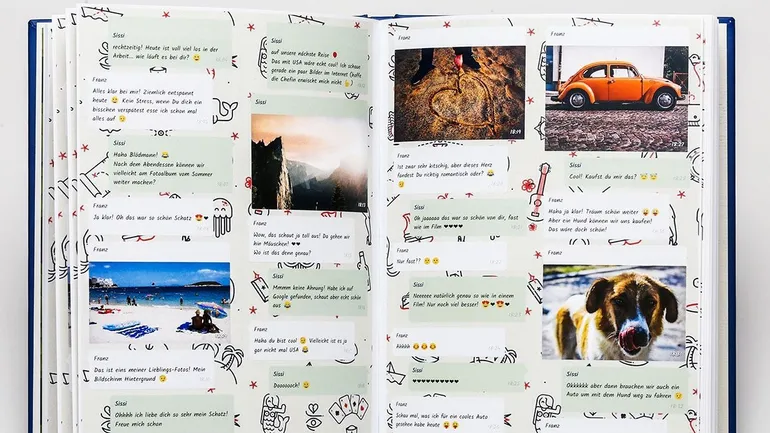 Sissi
rechtzeitig! Heute ist voll viel los in der
Arbeit... wie läuft es bei dir?
Franz
Alles klar bei mir! Ziemlich entspannt
heute Kein Stress, wenn Du dich ein
bisschen verspätest esse ich schon mal
alles auf
Sissi
Haha Blödmann!
Nach dem Abendessen können wir
vielleicht am Fotoalbum vom Sommer
weiter machen?
Franz
Ja klar! Oh das war so schön Schatz
Franz
Franz
Das ist eins meiner Lieblings-Fotos! Mein
Bildschirm Hintergrund
Sissi
Ohhhh ich liebe dich so sehr mein Schatz!
Freue mich schon
Sissi
auf unsere nächste Reise
Das mit USA wäre echt cool! Ich schaue
gerade ein paar Bilder im Internet (hoffe
die Chefin erwischt mich nicht
Sissi
Franz
Wow, das schaut ja toll aus! Da gehen wir
hin Mäuschen! ♥♥
Wo ist das denn genau?
Sissi
Mmmm keine Ahnung! Hab ich auf
Google gefunden, schaut aber echt schön
aus
Franz
Haha du bist cool Vielleicht ist es ja
gar nicht mal USA
Sissi
Daooooch!
Franz
18:19
Franz
Ist zwar sehr kitschig, aber dieses Herz
fandest Du richtig romantisch oder?
Sissi
Oh jaaaaa das war so schön von dir, fast
wie im Film ♥♥♥♥
Franz
Nur fast??
Sissi
Neeeee natürlich genau so wie in einem
Film! Nur noch viel besser!
Franz
Sissi
♥♥♥♥♥♥♥♥♥♥
Franz
Schau mal, was ich für ein cooles Auto
gesehen habe heute
Franz
18:27
Sissi
Cool! Kaufst du mir das?
Franz
Haha ja klar! Träum schön weiter
Aber ein Hund können wir uns kaufen!
Das wäre doch schön!
Franz
Sissi
Okkkkkk aber dann brauchen wir auch ein
Auto um mit dem Hund weg zu fahren
Franz